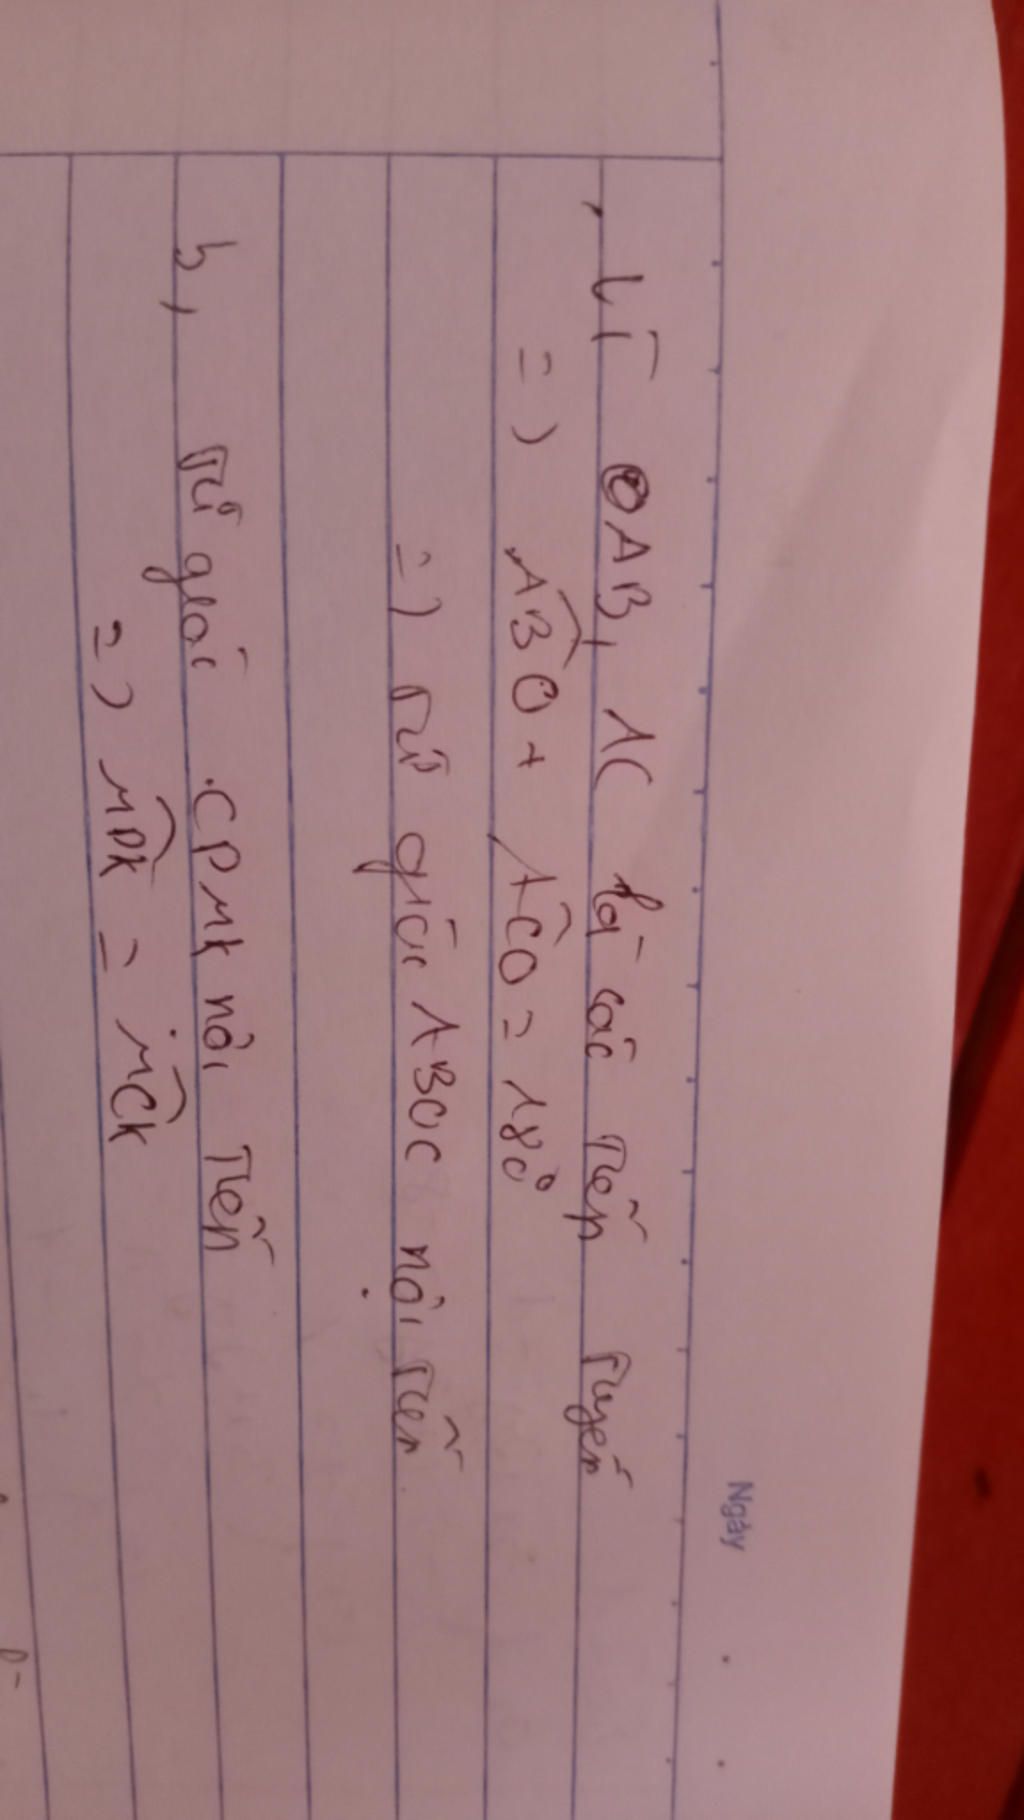 Ngày
, Vì AB, AC là các tiếp tuyến
=> ABO + ACO = 180°
=> tứ giác ABOC nội tiếp
b, tứ giác CPMK nội tiếp
=> MPK = MCK